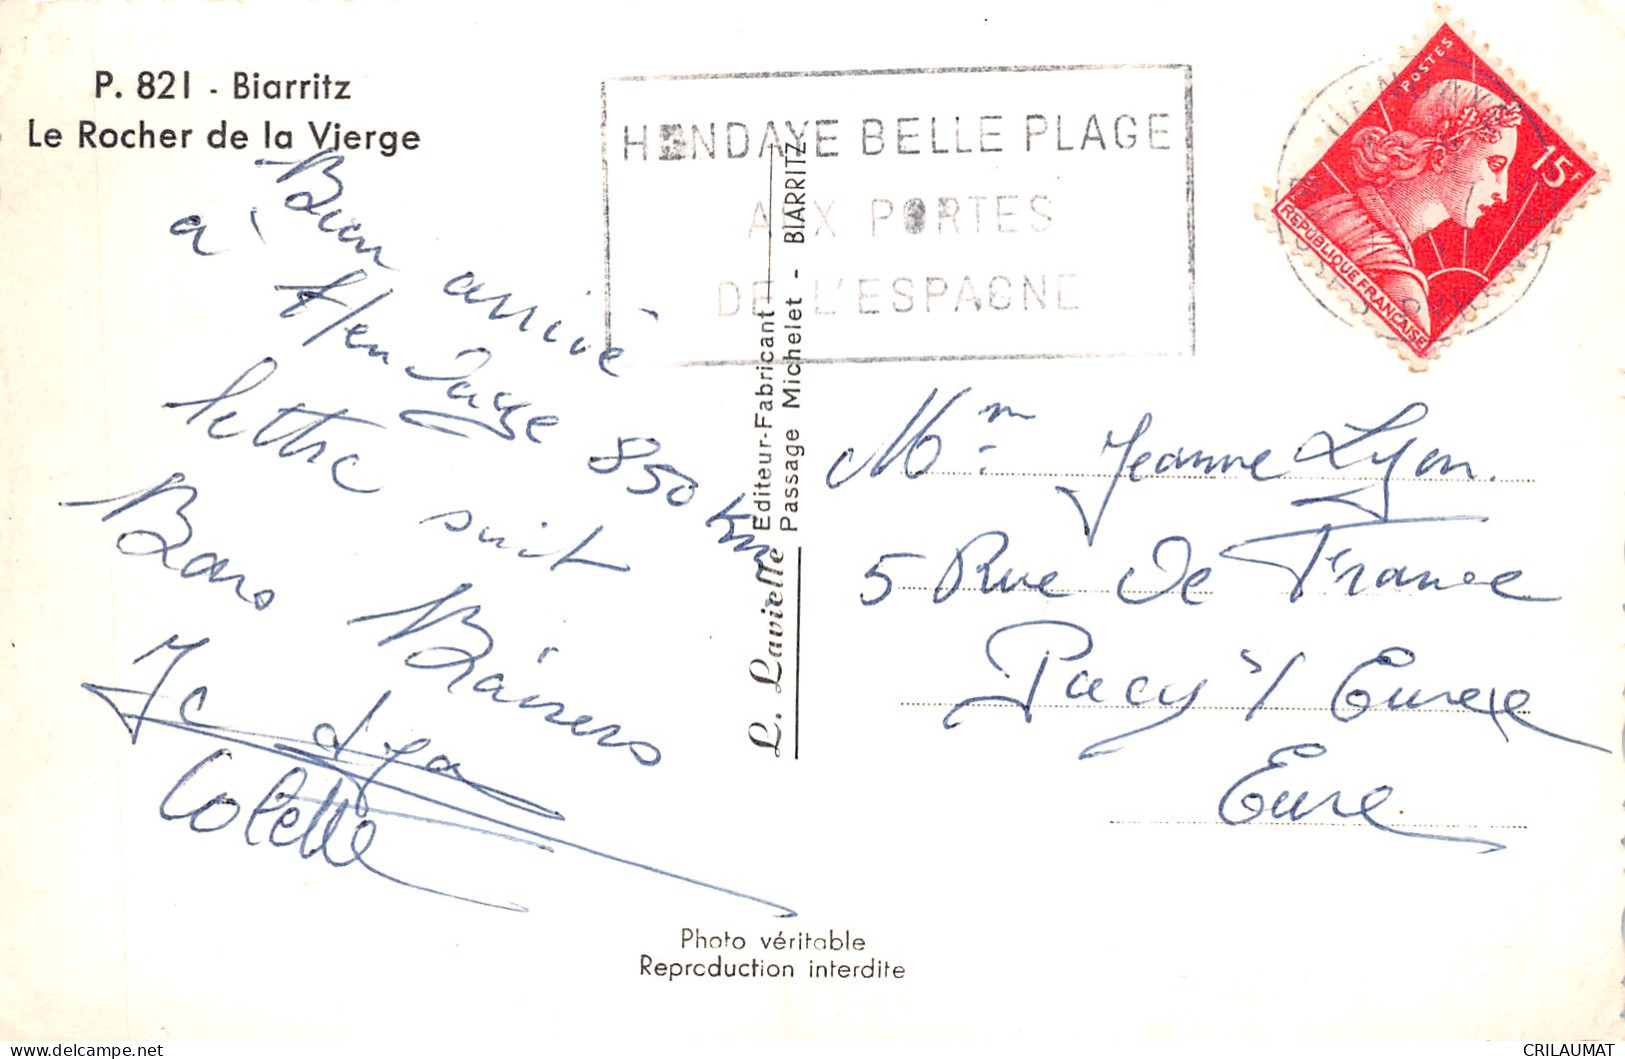 P. 821 - Biarritz
Le Rocher de la Vierge
HENDAYE BELLE PLAGE
AUX PORTES
DE L'ESPAGNE
POSTES
15F
REPUBLIQUE FRANÇAISE
Bien arrivé
à Hendaye 850 km
lettre suit
Bons Baisers
JC
Colette
L. Lavielle Editeur-Fabricant
Passage Michelet - BIARRITZ
Mme Jeanne Lyon
5 Rue De France
Pacy s/ Eure
Eure
Photo véritable
Reproduction interdite
CRILAUMAT